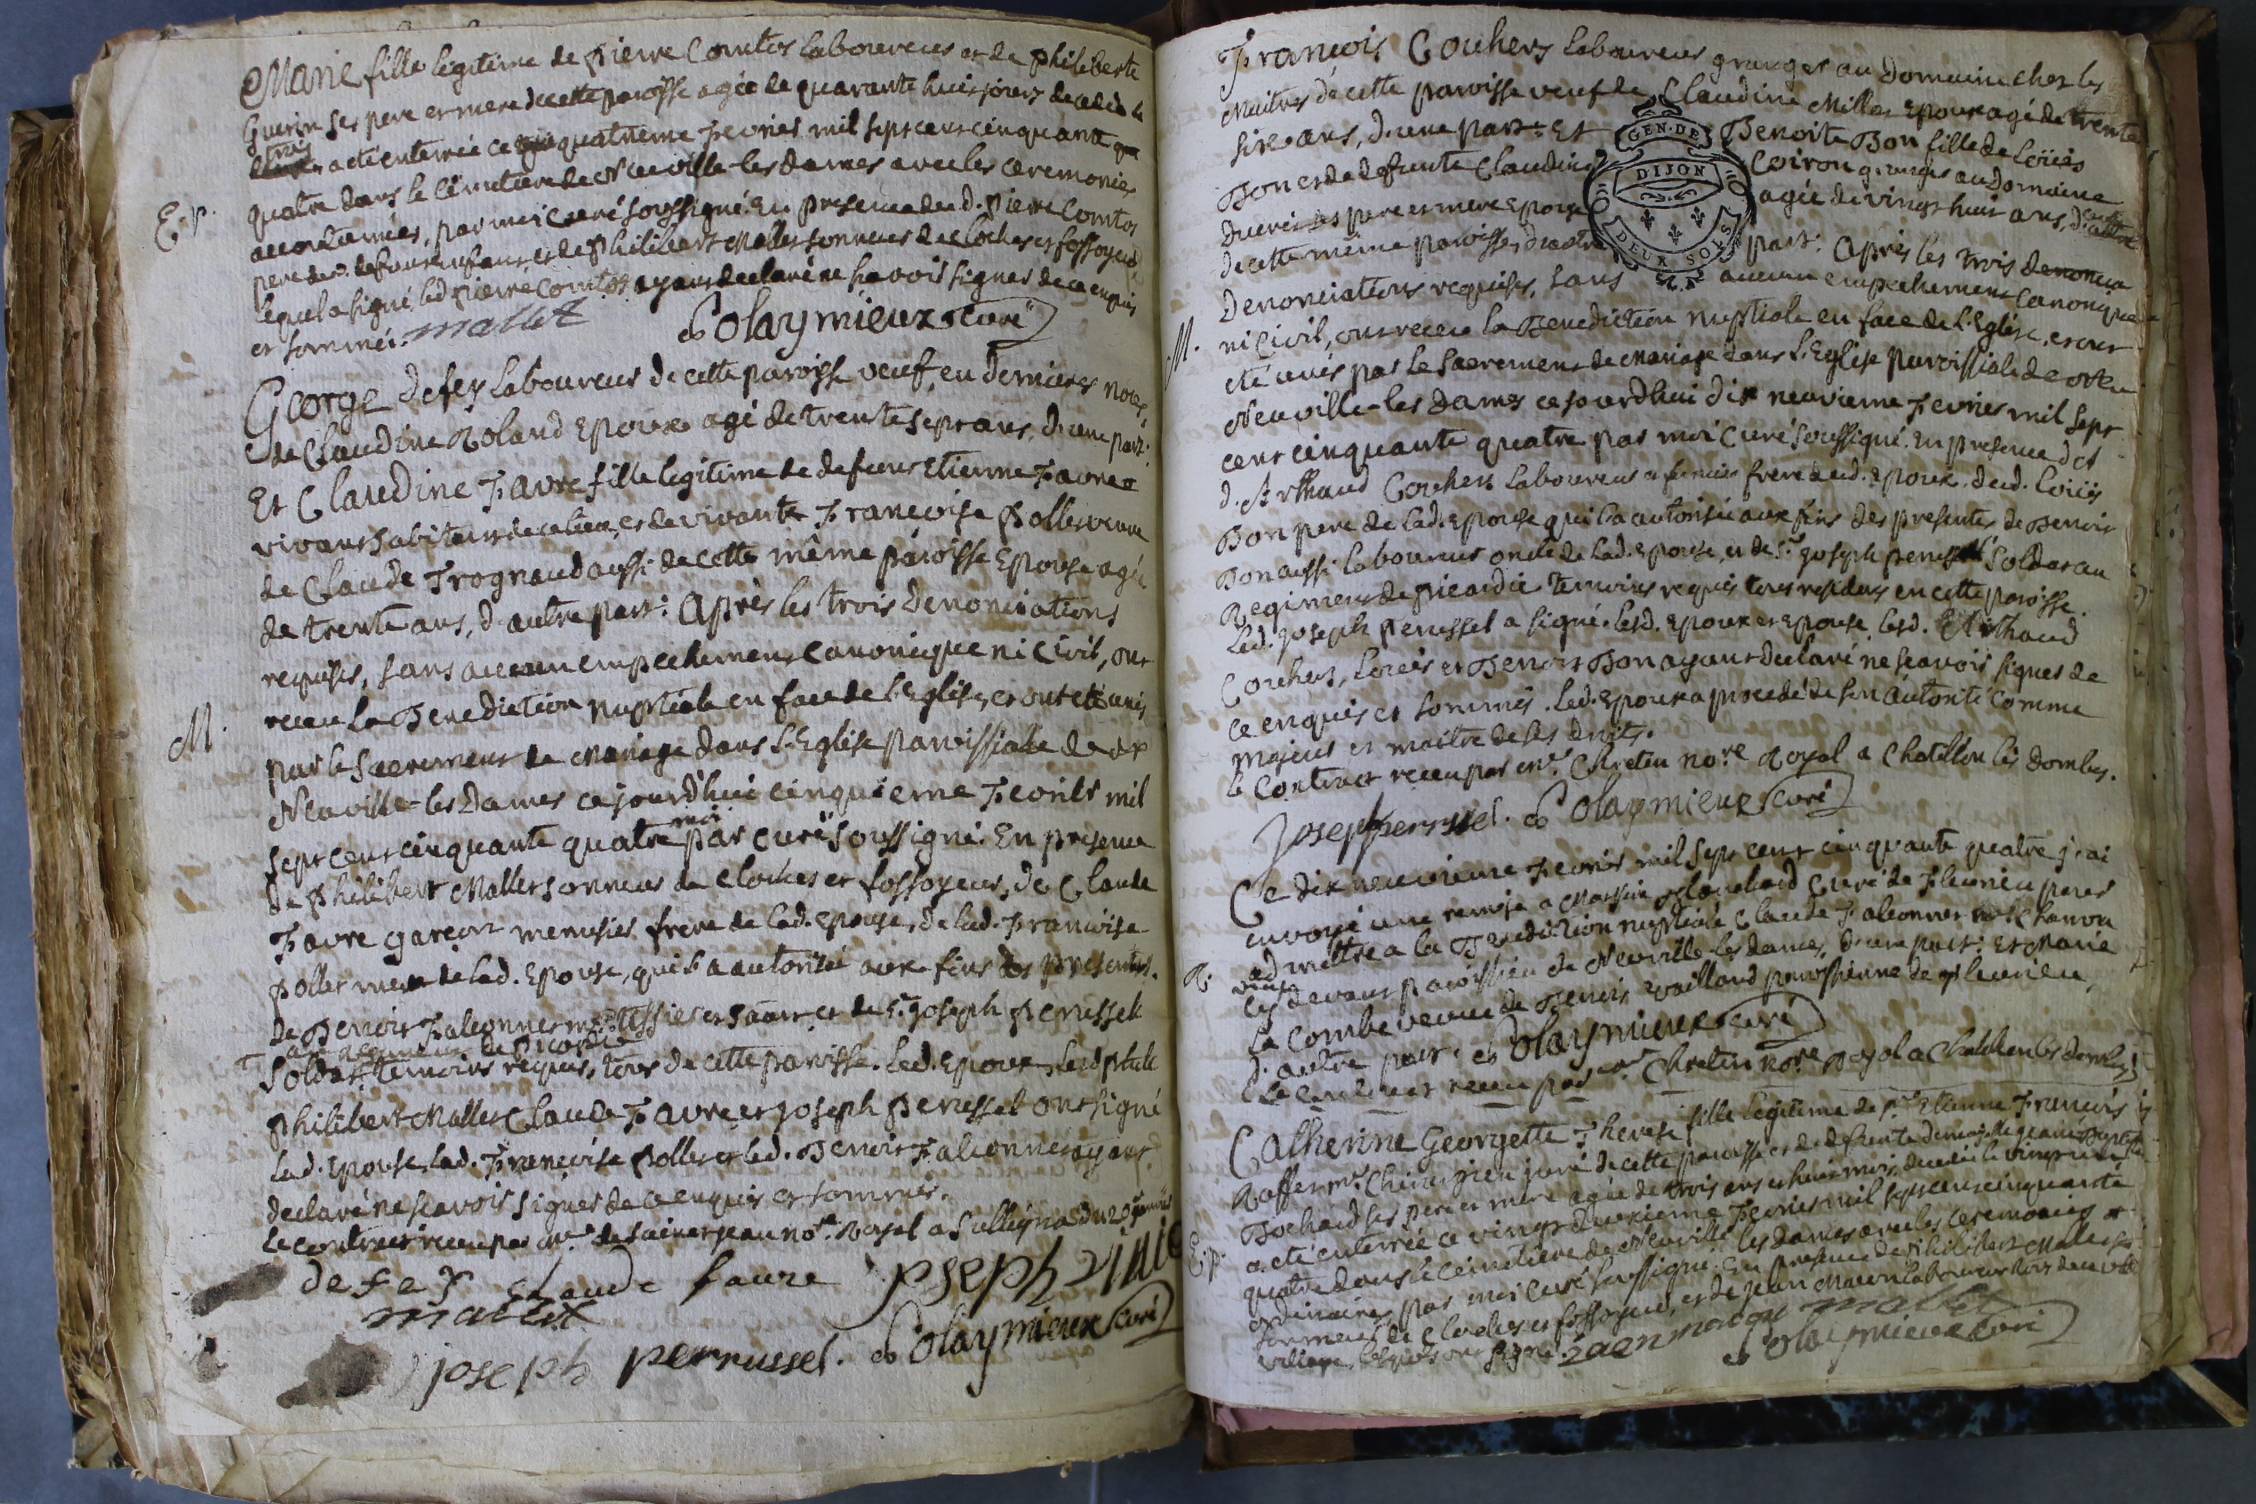 Marie fille legitime de Pierre Comtos laboureur et de philiberte
Guerin ses pere et mere de cette paroisse agée de quarante huit jours decedée le
trois a eté enterrée ce quatrieme Fevrier mil sept cent cinquante
quatre dans le Cimetiere de Neuville-les dames avec les ceremonies
accoutumées, par moi curé soussigné. En presence dud. Pierre Comtos
pere de lad. defunte enfant, et de Philibert Mallet sonneur de cloches et fossoyeur
lequel a signé, led. Pierre Comtos ayant declaré ne sçavoir signer de ce enquis
et sommé. mallet
E.p.
Colaymieux Curé
George defey laboureur de cette paroisse veuf, en dernieres noces,
de Claudine Roland Epoux agé de trente sept ans, d'une part:
Et Claudine Favre fille legitime de defunt Etienne Favre
vivant habitant de ce lieu, et de vivante Françoise Pollet veuve
de Claude Trognaud aussi de cette même paroisse Epouse agée
de trente ans, d'autre part: Après les trois denonciations
requises, sans aucun empechement canonique ni civil, ont
receu la Benediction nuptiale en face de l'Eglise, et ont eté unis
M.
par le Sacrement de Mariage dans l'Eglise paroissiale de
Neuville-les Dames cejourd'hui cinquieme Fevrier mil
sept cent cinquante quatre par moi curé soussigné. En presence
de Philibert Mallet sonneur de cloches et fossoyeur, de Claude
Favre garçon menusier frere de lad. epouse, de lad. Françoise
Pollet mere de lad. Epouse, qui l'a autorisée aux fins des presentes.
de Benoit Falconnet me. tissier et de Sr. Joseph Perussel
Soldat au regiment de picardie temoins requis, tous de cette paroisse. Led. Epoux,
Philibert Mallet Claude Favre et Joseph Perussel ont signé
lad. Epouse, lad. Françoise Pollet et led. Benoit Falconnet ayant
declaré ne sçavoir signer de ce enquis et sommés.
Le contract receu par me. de Saint jean nore. Royal a Sulligna du 20 janvier
defey Claude faure
mallet
joseph perrussel. Colaymieux Curé
François Couhers laboureur granger au Domaine chez les
Maitres de cette paroisse veuf de Claudine Millet Epoux agé de trente
six ans, d'une part: Et Benoite Bon fille de Loüis
Bon et de defunte Claudine Coiron granger au Domaine
ses pere et mere Epouse agée de vingt huit ans, d'autre
de cette même paroisse, d'autre part. Après les trois
Denonciations requises, sans aucun empechement canonique
GEN. DE
DIJON
DEUX SOLS
ni civil, ont receu la Benediction nuptiale en face de l'Eglise, et ont
M.
eté unis par le Sacrement de Mariage dans l'Eglise paroissiale de
Neuville-les Dames ce jourdhui dix neuvieme Fevrier mil sept
cent cinquante quatre par moi Curé soussigné. En presence
d'Arthaud Couhers laboureur frere dud. epoux, dud. Loüis
Bon pere de lad. Epouse qui l'a autorisée aux fins des presentes, de Benoit
Bon aussi laboureur oncle de lad. Epouse, et de Sr. joseph perussel Soldat au
Regiment de Picardie temoins requis tous residens en cette paroisse.
Led. joseph perussel a signé. lesd. Epoux et Epouse, lesd. Arthaud
Couhers, Loüis et Benoit Bon ayant declaré ne sçavoir signer de
ce enquis et sommés. Led. Epoux a procedé de son autorité comme
majeur et maitre de ses droits.
le Contract receu par me. Chretin nore Royal a Chatillon lès dombes.
Joseph perrussel. Colaymieux Curé
Ce dix neuvieme Fevrier mil sept cent cinquante quatre j'ai
envoyé une remise a Monsieur Blanchard Curé de Fleurieu pour
admettre a la Benediction nuptiale Claude Falconnet
R.
cy devant paroissien de Neuville-les dames, d'une part: Et Marie
la Combe veuve de Benoit Vailland paroissienne de Fleurieu,
d'autre part. Colaymieux Curé
Le Contract receu par me. Chretin nore Royal a Chatillon les dombes
Catherine Georgette Therese fille legitime de Sr. Etienne François
Raffet me. Chirurgien juré de cette paroisse et de defunte demoiselle jeanne Baptiste
Bochard ses pere et mere agée de trois ans et huit mois, decedée le vingt un
a eté enterrée ce vingt deuxieme Fevrier mil sept cent cinquante
E.p.
quatre dans le Cimetiere de Neuville les Dames avec les ceremonies
ordinaires par moi Curé soussigné. En presence de Philibert Mallet
sonneur de Cloches et fossoyeur, et de jean Maery laboureur
village, lesquels ont signé. mallet
Colaymieux Curé